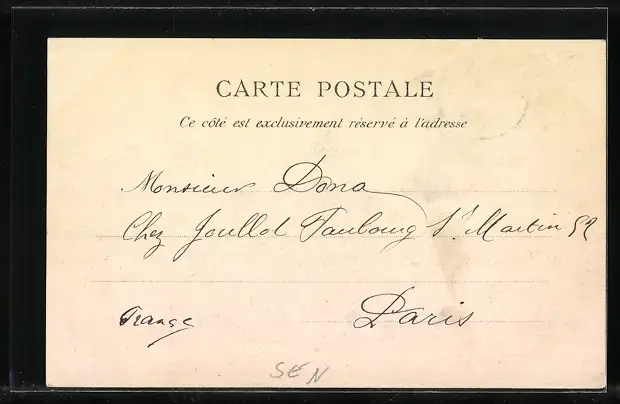 CARTE POSTALE
Ce côté est exclusivement réservé à l'adresse
Monsieur Dona
Chez Joullot Faubourg St Martin 52
France
Paris
SEN